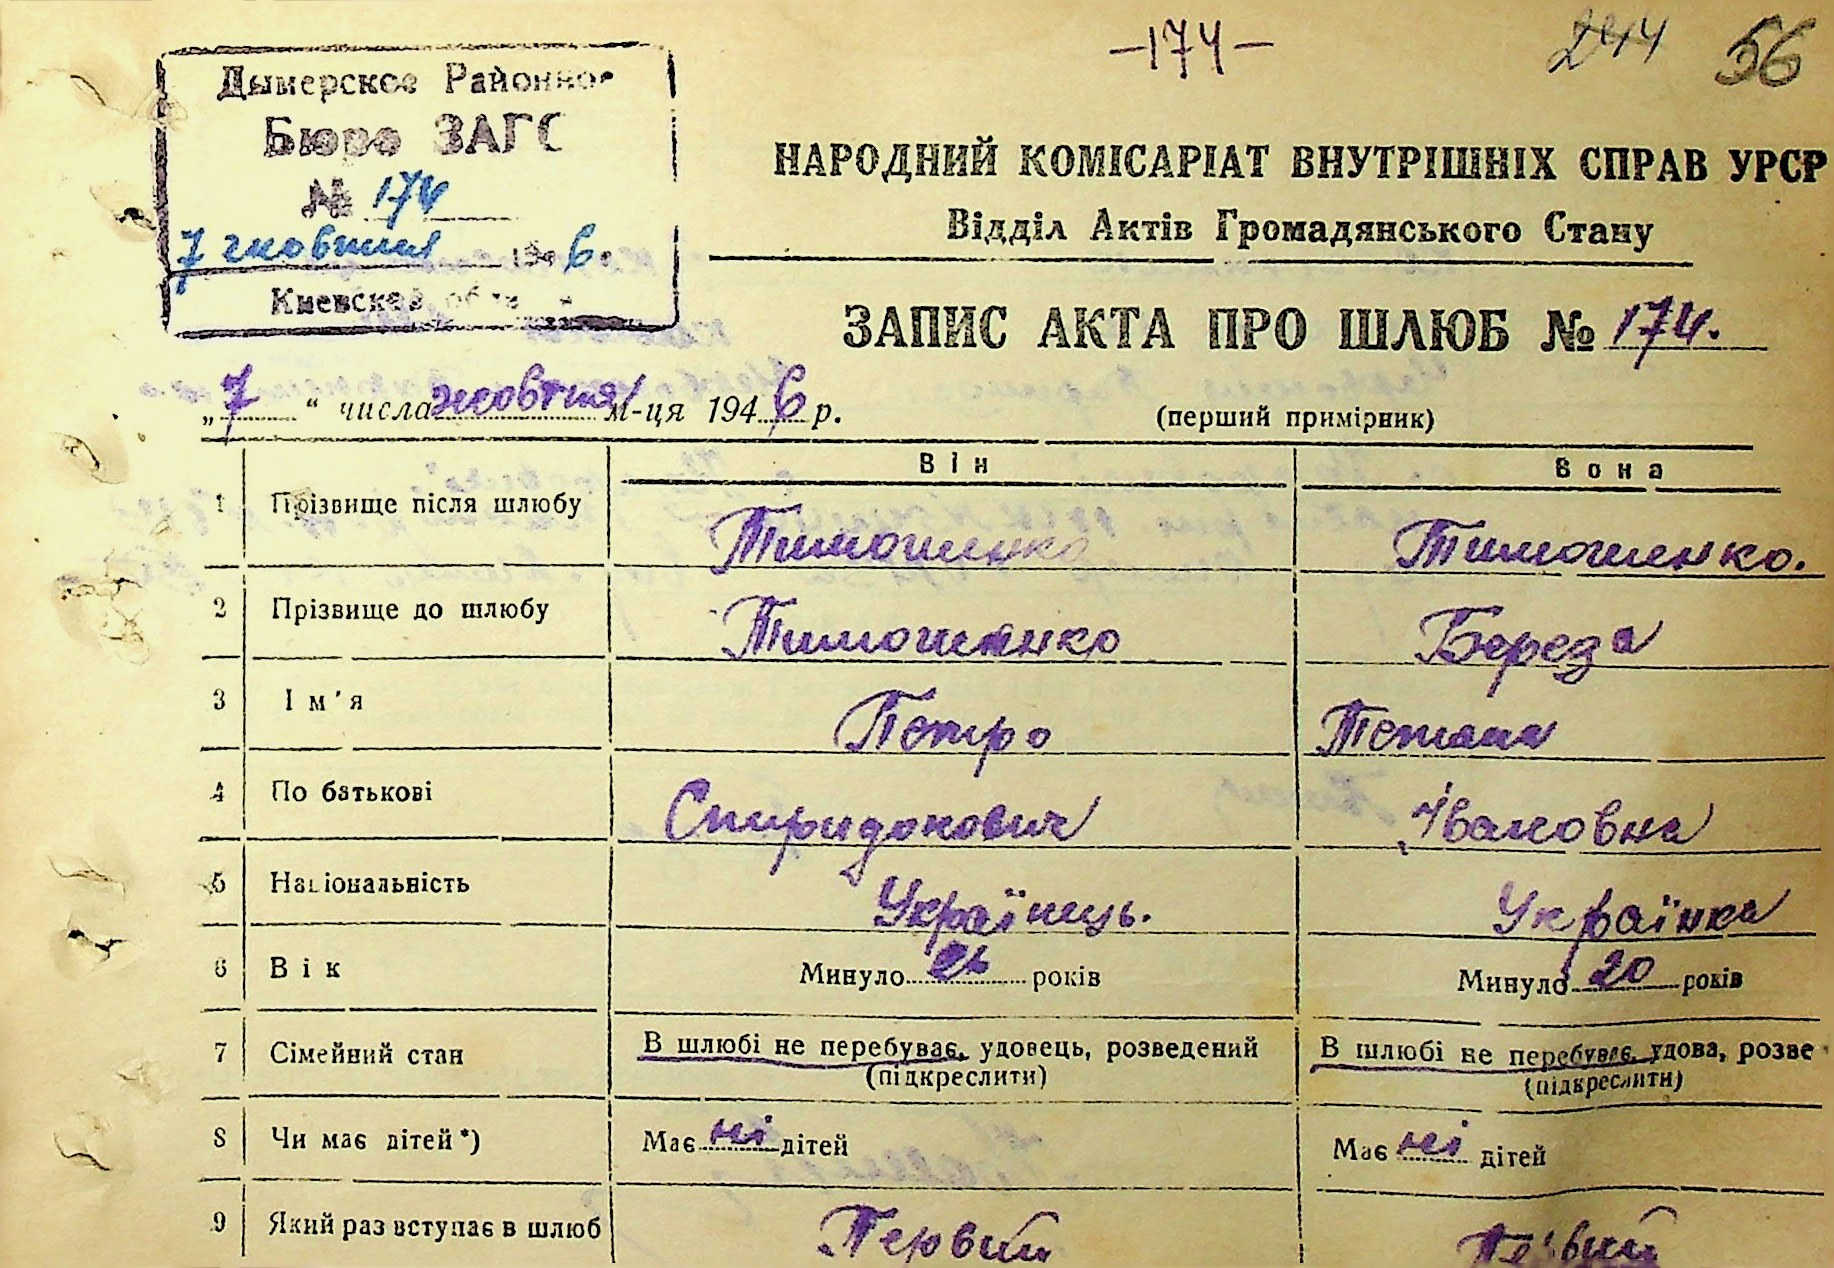 —174—
244 56
Дымерское Районно
Бюро ЗАГС
№ 174
7 жовтня 1946.
Киевская
НАРОДНИЙ КОМІСАРІАТ ВНУТРІШНІХ СПРАВ УРСР
Відділ Актів Громадянського Стану
ЗАПИС АКТА ПРО ШЛЮБ № 174.
„7“ числа жовтня м-ця 1946 р.
(перший примірник)
Він Вона
1 Прізвище після шлюбу Тимошенко Тимошенко.
2 Прізвище до шлюбу Тимошенко Береза
3 Ім'я Петро Тетяна
4 По батькові Спиридонович Івановна
5 Національність Українець. Українка
6 Вік Минуло років Минуло 20 років
7 Сімейний стан В шлюбі не перебуває, удовець, розведений В шлюбі не перебуває, удова, розве
(підкреслити) (підкреслити)
8 Чи має дітей*) Має ні дітей Має ні дітей
9 Який раз вступає в шлюб Первий Первий